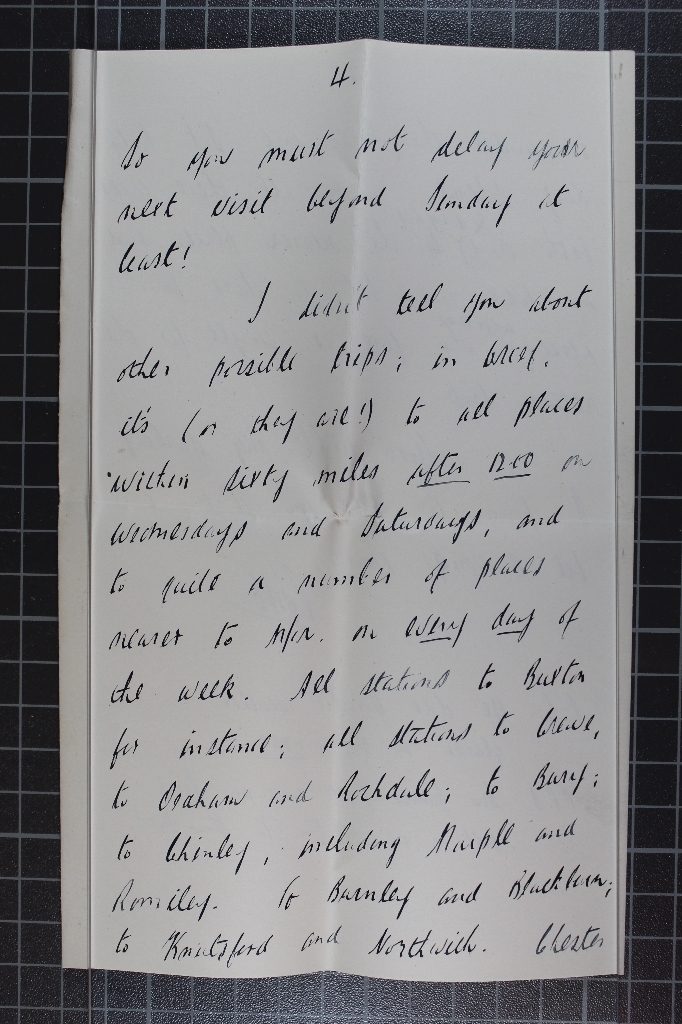 4.
So you must not delay your
next visit beyond Sunday at
least!
I didn't tell you about
other possible trips; in brief,
it's (or they are!) to all places
within sixty miles after 12.00 on
Wednesdays and Saturdays, and
to quite a number of places
nearer to M/cr. on every day of
the week. All stations to Buxton
for instance; all stations to Crewe,
to Oldham and Rochdale; to Bury;
to Chinley, including Marple and
Romiley. To Burnley and Blackburn;
to Knutsford and Northwich. Chester